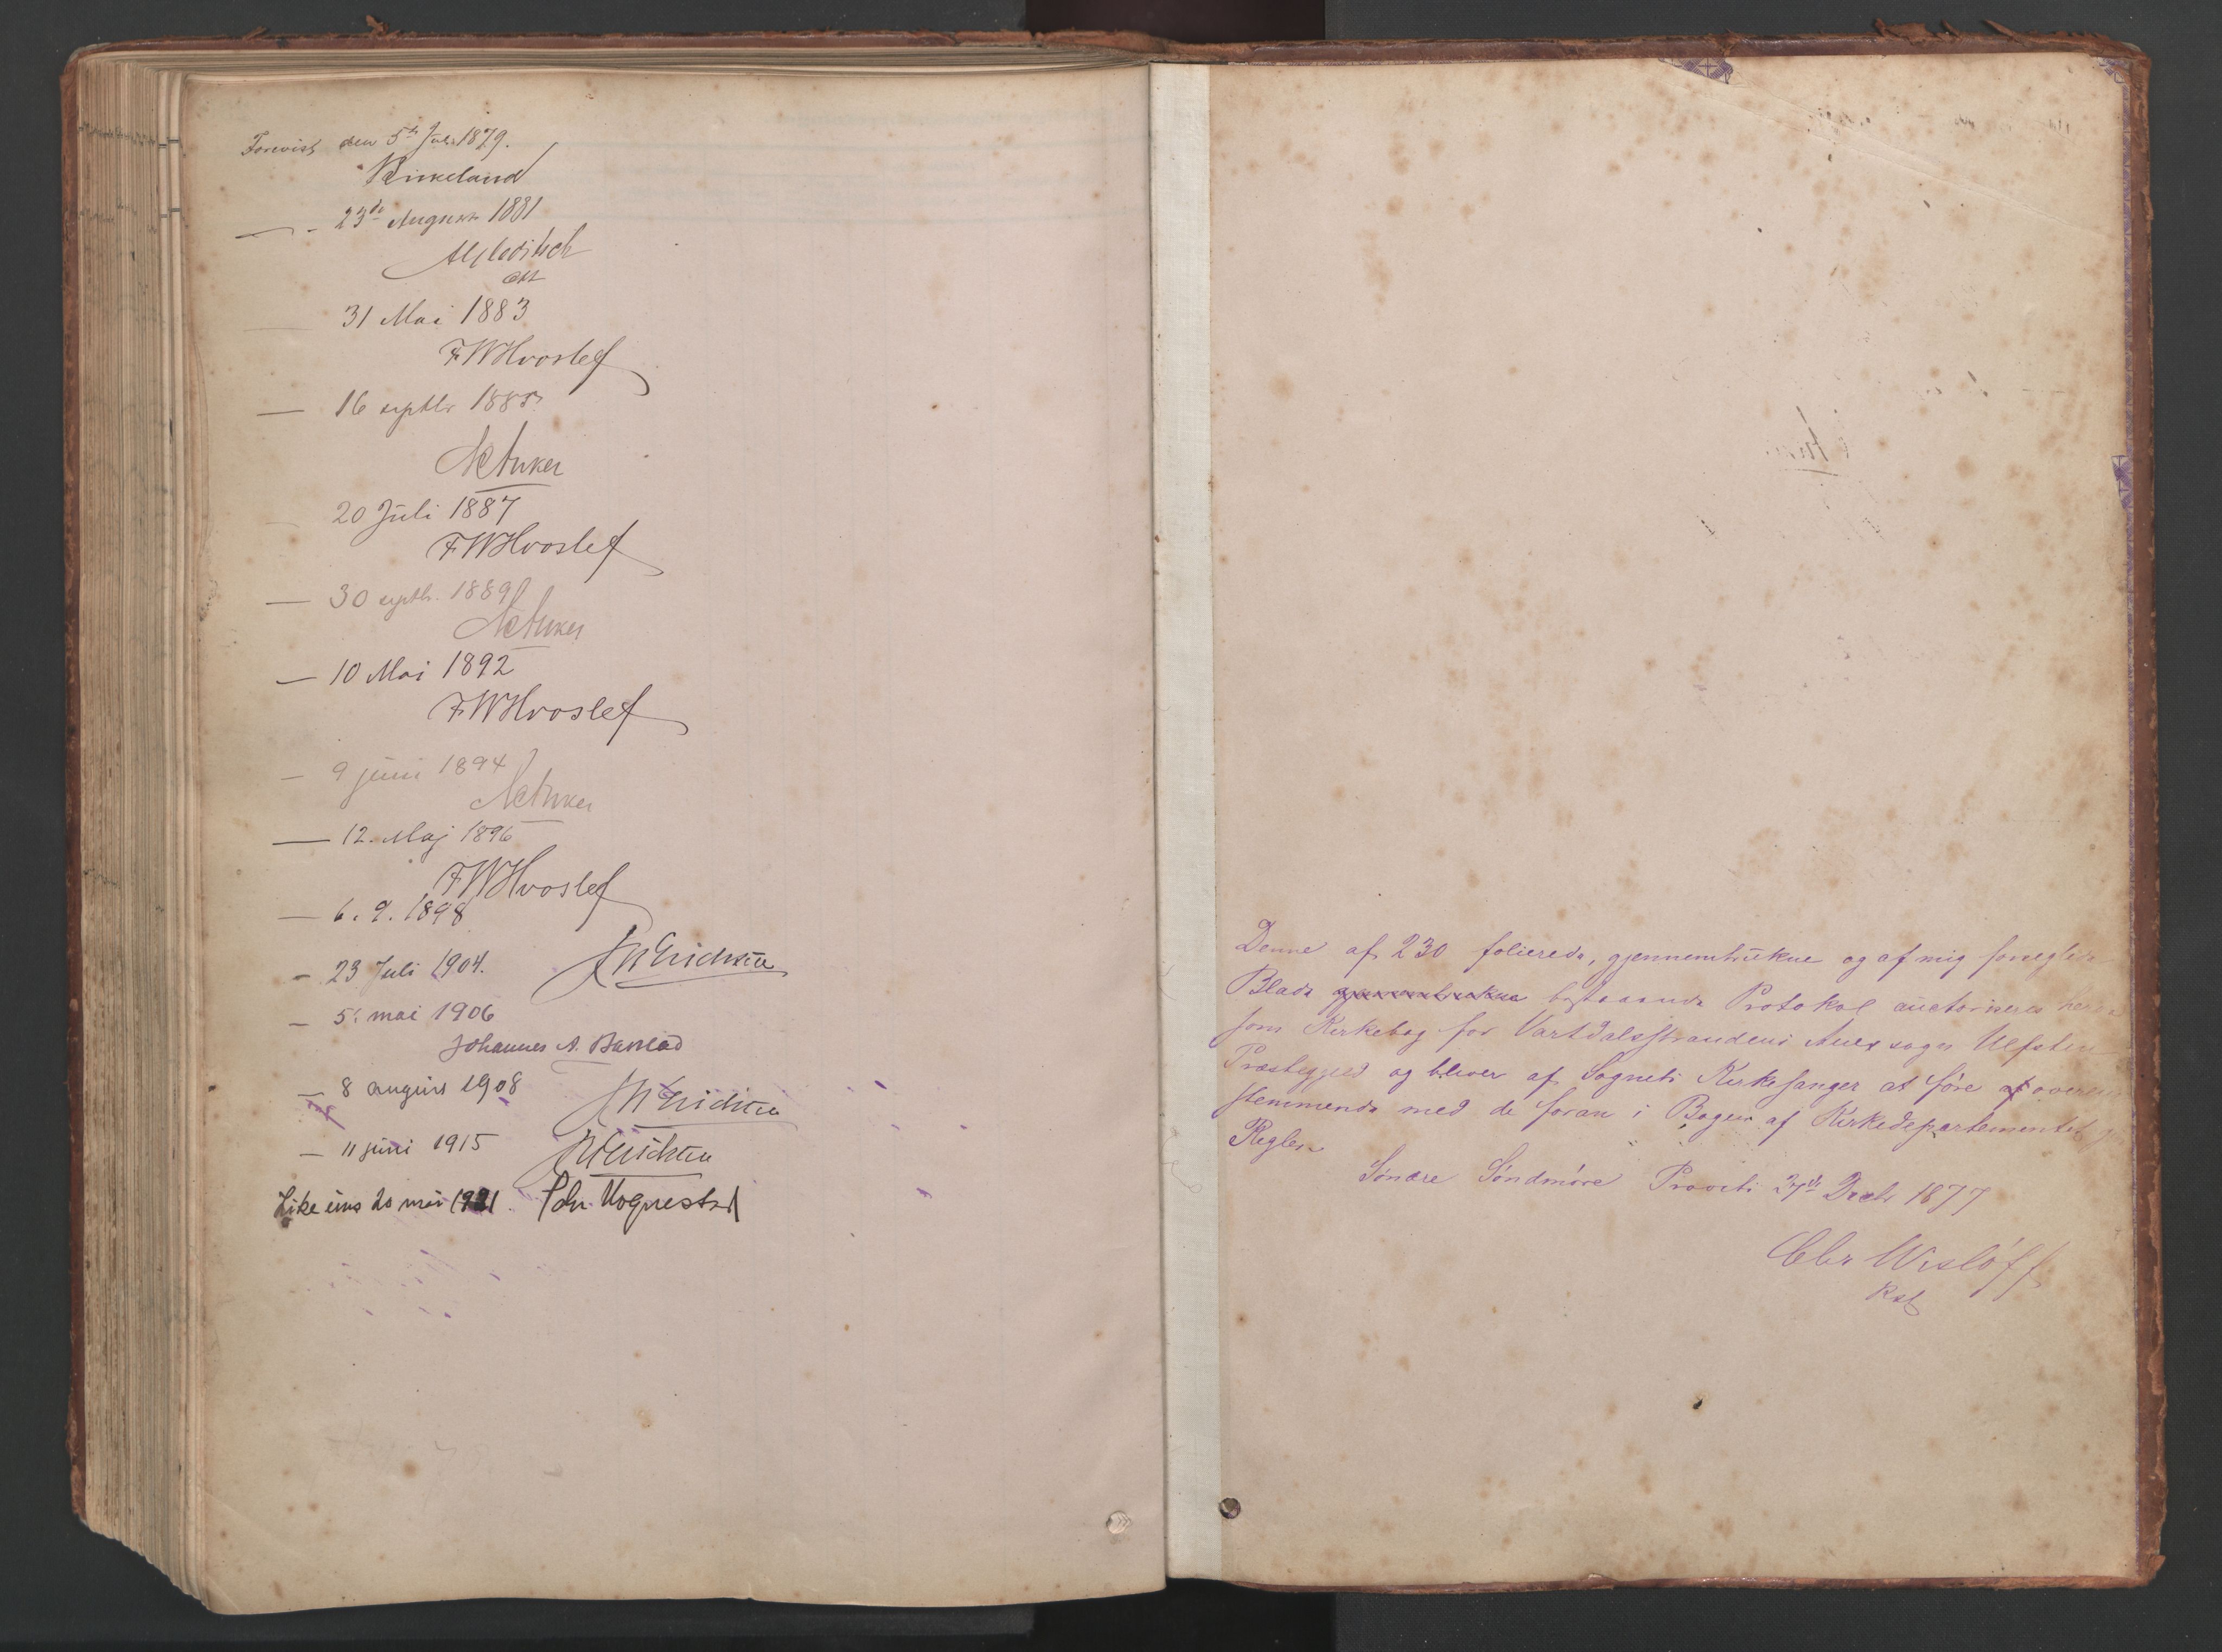 Forevist den 5te Juli 1879.
Birkeland
— - 23de August 1881
cst
— 31 Mai 1883
FWHvoslef
— 16 septbr 1885
NCAnker
20 Juli 1887
FWHvoslef
— 30 septbr. 1889
NCAnker
— 10 Mai 1892
FWHvoslef
— 9 juni 1894
NCAnker
— 12. Maj 1896
FWHvoslef
— 6. 9. 1898
- 23 Juli 1904.
- 5. mai 1906
Johannes A. Barstad
- 8 august 1908
- 11 juni 1915
Like eins 20 mai 1921 Joh. Kognestad
Denne af 230 folierede, gjennemtrukne og af mig forseglede
Blade gjennemtrukne bestaaende Protokol auctoriseres herved
som Kirkebog for Vartdalsstrandens Annexsogn Ulfsten
Præstegjeld og bliver af Sognets Kirkesanger at føre af overens
stemmende med de foran i Bogen af Kirkedepartementet
Regler
Søndre Søndmøre Provsti 27d Decbr 1877
Chr Wisløff
Kst